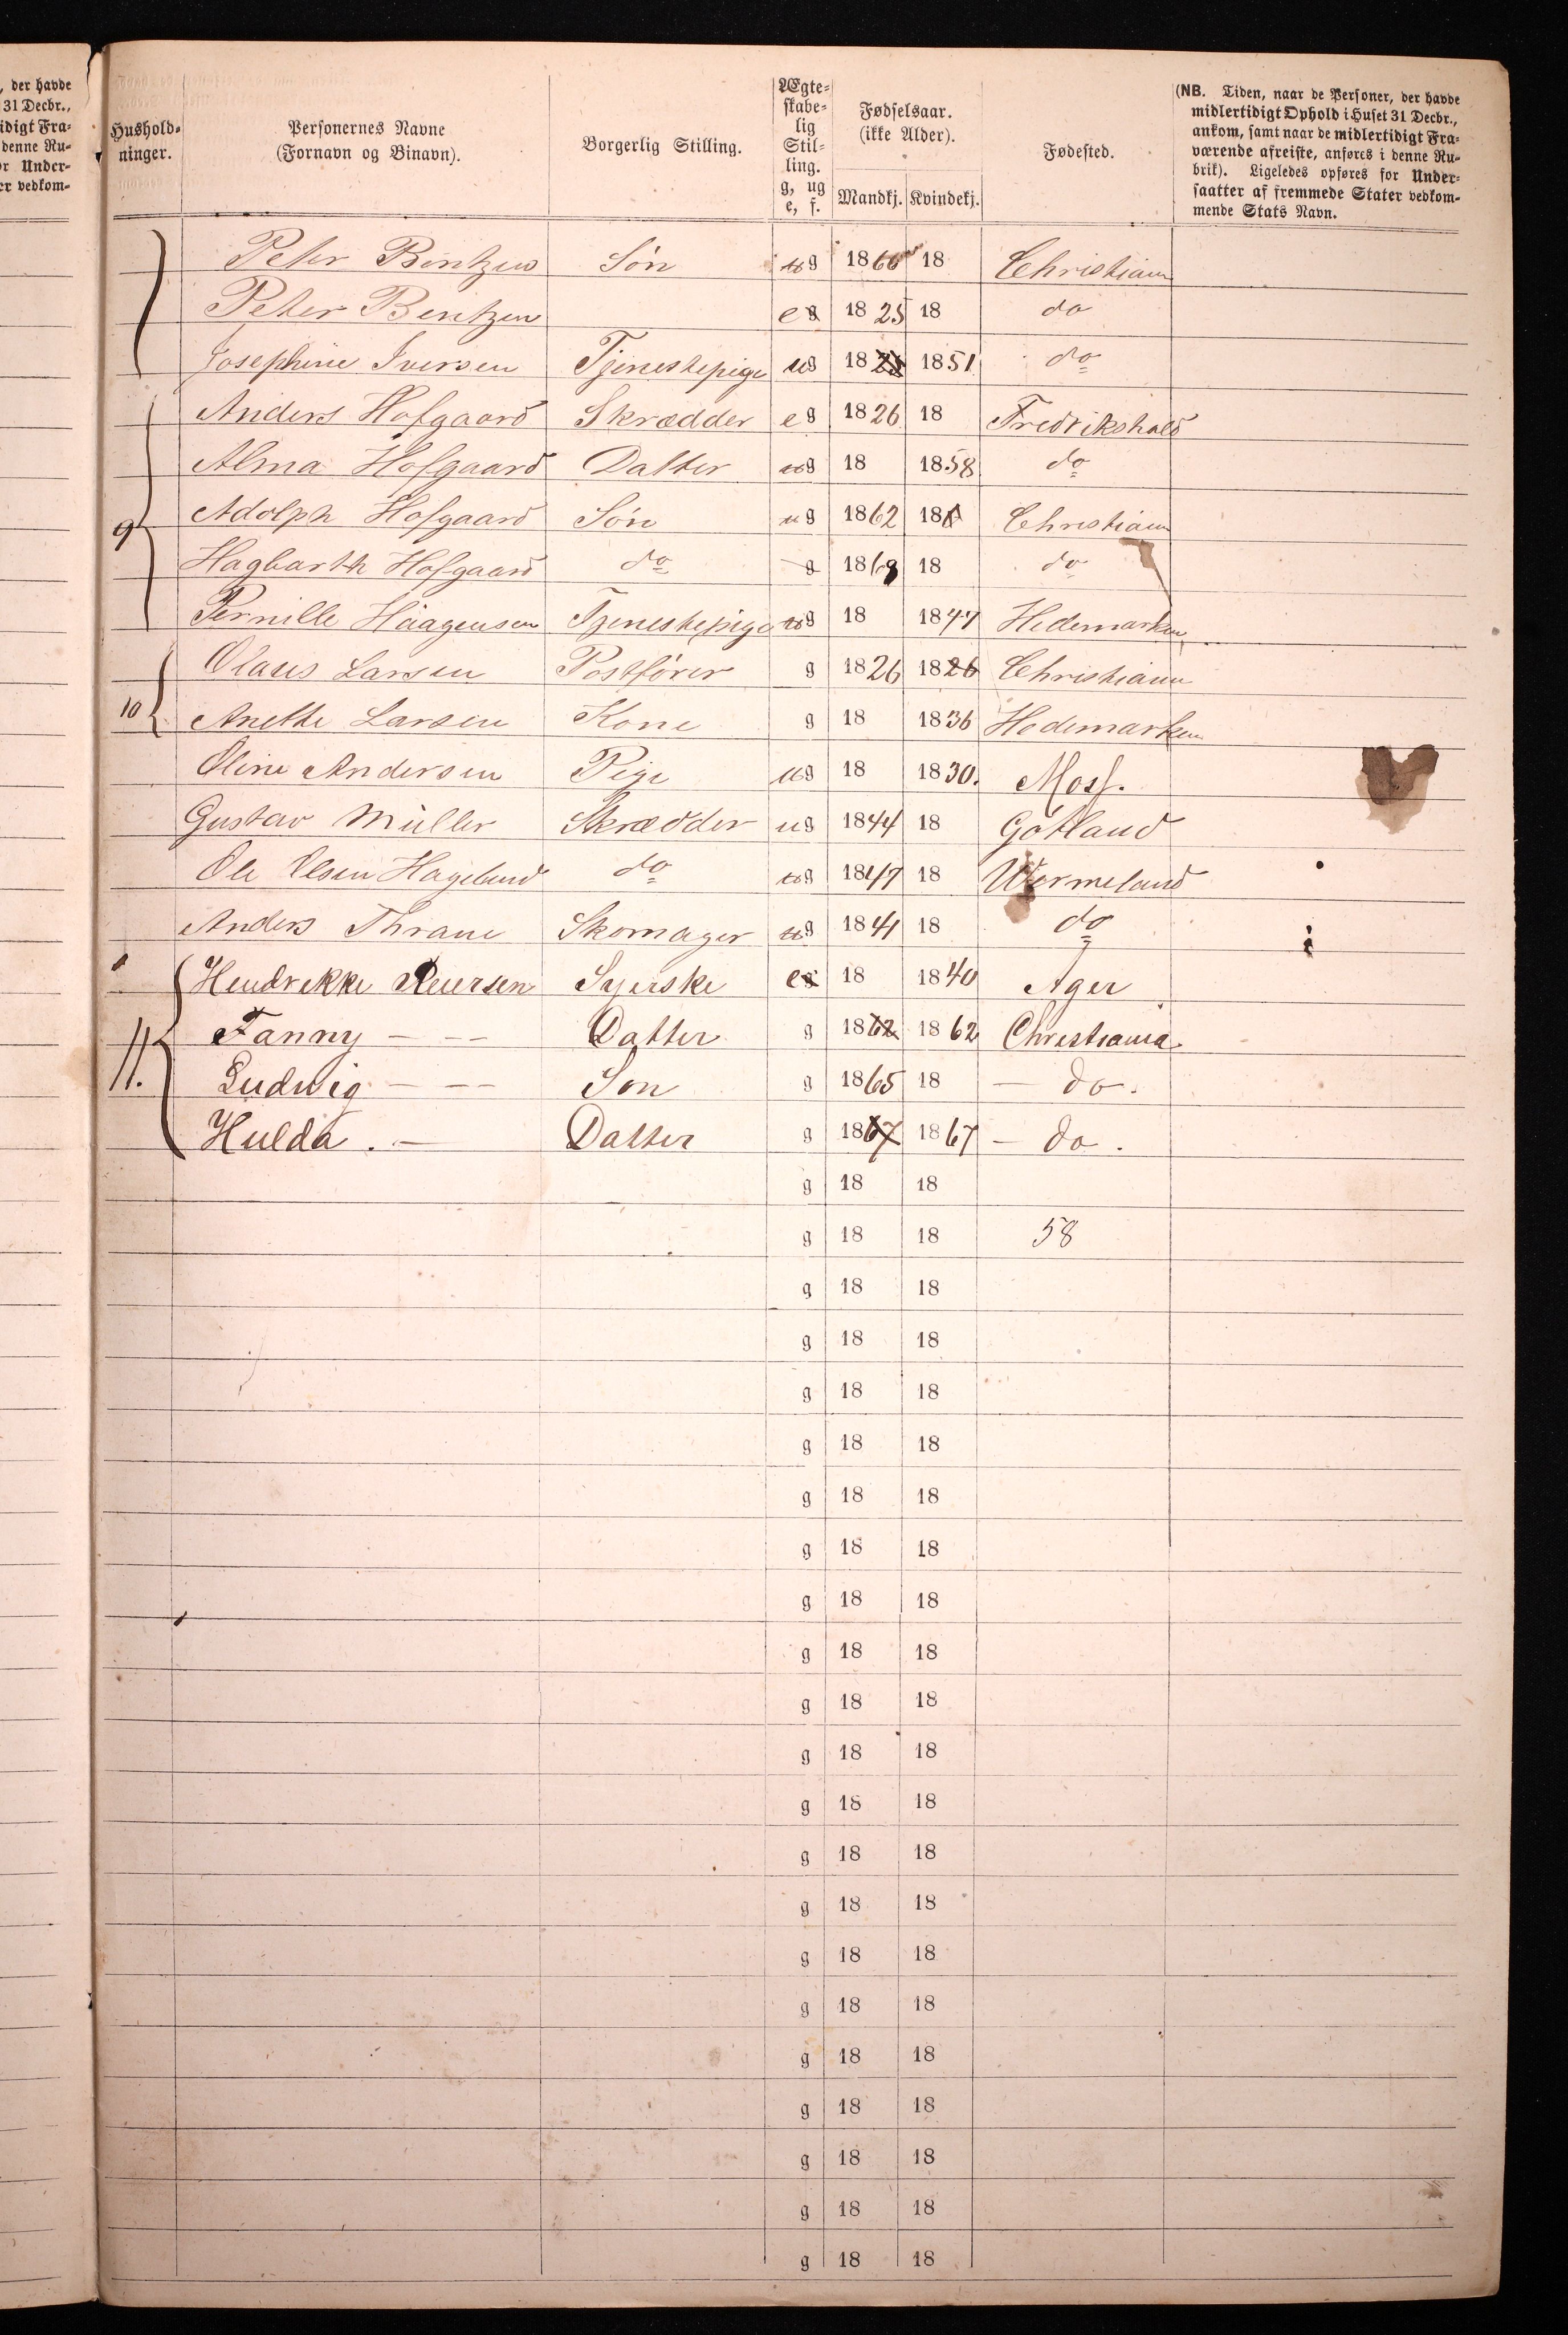 , der havde
31 Decbr.,
idigt Fra-
denne Ru-
or Under-
er vedkom-
Hushold-
ninger.
Personernes Navne
(Fornavn og Binavn).
Borgerlig Stilling.
Ægte-
skabe-
lig
Stil-
ling.
g, ug
e, f.
Fødselsaar.
(ikke Alder).
Mandkj. Kvindekj.
Fødested.
(NB. Tiden, naar de Personer, der havde
midlertidigt Ophold i Huset 31 Decbr.,
ankom, samt naar de midlertidigt Fra-
værende afreiste, anføres i denne Ru-
brik). Ligeledes opføres for Under-
saatter af fremmede Stater vedkom-
mende Stats Navn.
Peter Bentzen Søn ug 1866 18 Christiania
Peter Bentzen e 1825 18 do
Josephine Iversen Tjenestepige ug 18 1851 do
Anders Hofgaard Skrædder eg 1826 18 Fredrikshald
Alma Hofgaard Datter ug 18 1858 do
9 Adolph Hofgaard Søn ug 1862 18 Christiania
Hagbarth Hofgaard do g 1868 18 do
Pernille Haagensen Tjenestepige ug 18 1847 Hedemarken
Olaus Larsen Postfører g 1826 1826 Christiania
10 Anette Larsen Kone g 18 1836 Hedemarken
Oline Andersen Pige ug 18 1830. Moss.
Gustav Müller Skrædder ug 1844 18 Gotland
Ole Olsen Hagelund do ug 1847 18 Wermeland
Anders Thrane Skomager ug 1841 18 do
Hendrekke Syerske e 18 1840 Ager
11. Fanny - -- Datter g 1862 1862 Christiania
Ludwig - -- Son g 1865 18 - do.
Hulda . - Datter g 1867 1867 - do.
g 18 18
g 18 18 58
g 18 18
g 18 18
g 18 18
g 18 18
g 18 18
g 18 18
g 18 18
g 18 18
g 18 18
g 18 18
g 18 18
g 18 18
g 18 18
g 18 18
g 18 18
g 18 18
g 18 18
g 18 18
g 18 18
g 18 18